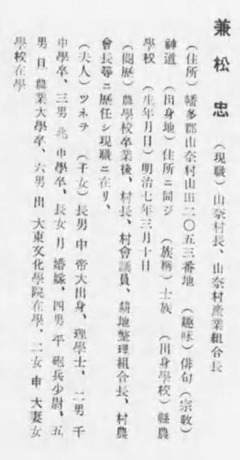 兼松忠 (現職) 山奈村長、山奈村產業組合長
(住所) 幡多郡山奈村山田二〇五三番地 (趣味) 俳句 (宗敎)
神道 (出身地) 住所ニ同ジ (族稱) 士族 (出身學校) 縣農
學校 (生年月日) 明治七年三月十日
(閱歷) 農學校卒業後、村長、村會議員、耕地整理組合長、村農
會長等ニ歷任シ現職ニ在リ、
(夫人) ツネヲ (子女) 長男 申 帝大出身、理學士、二男 千
中學卒、三男 兆 中學卒、長女 月 婚嫁、四男 平 砲兵少尉、五
男 貝 農業大學卒、六男 出 大東文化學院在學、二女 申 大妻女
學校在學